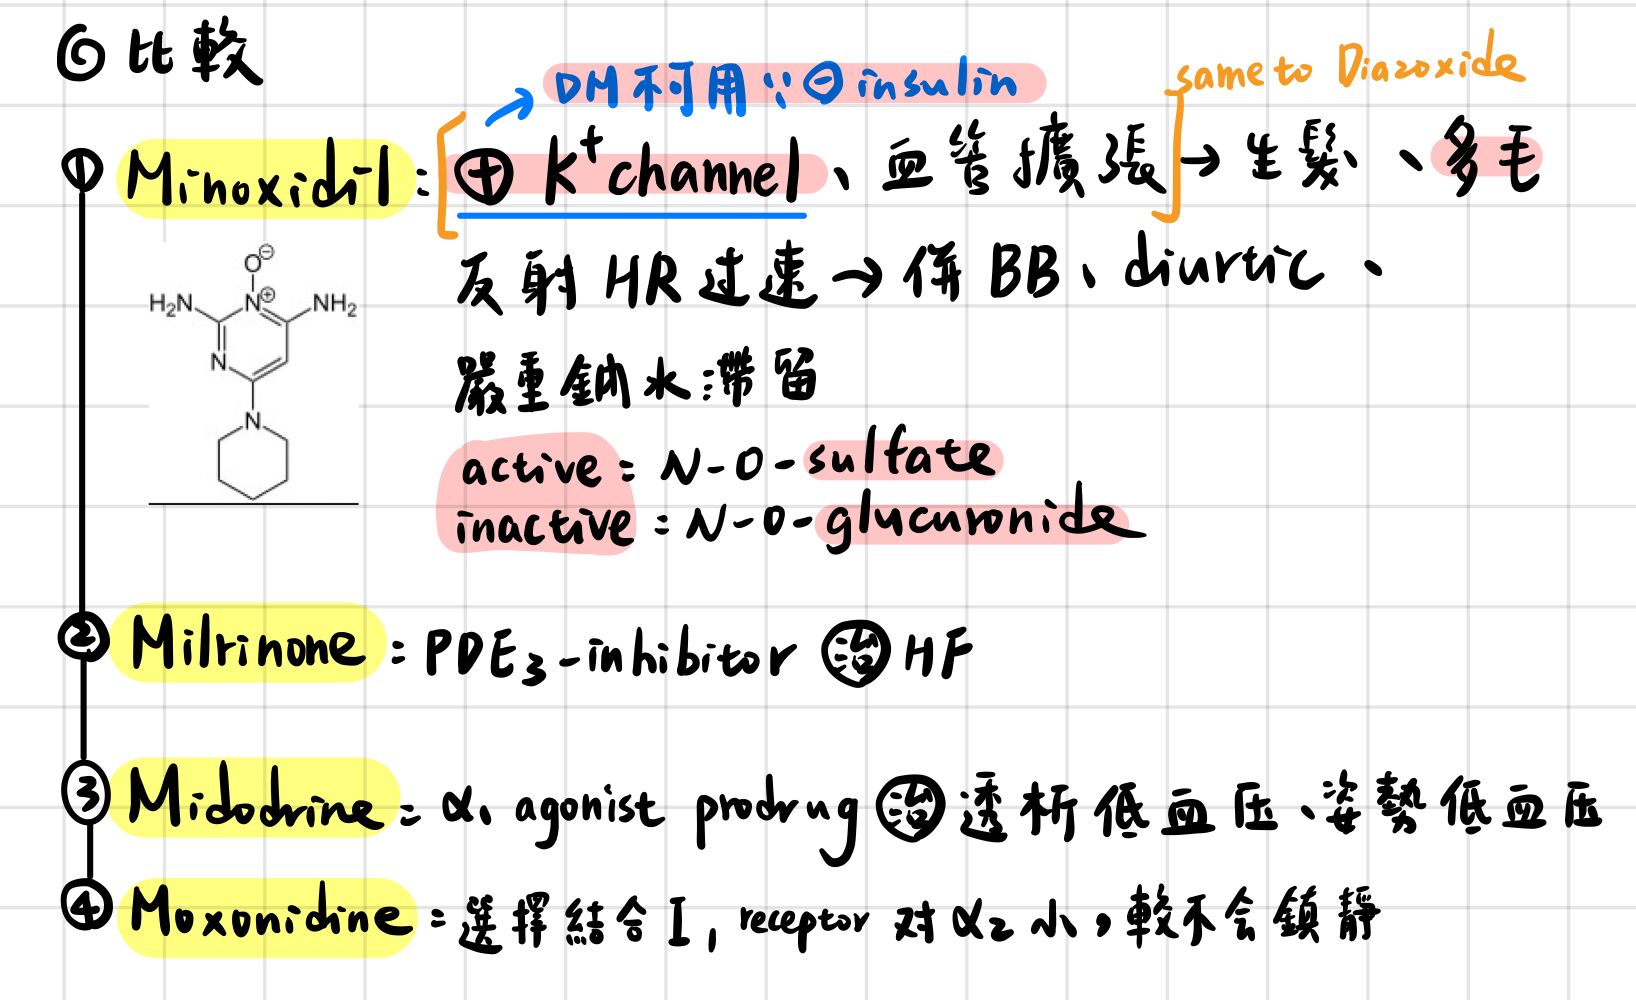 ◎ 比較
DM不可用∵⊖insulin
same to Diazoxide
① Minoxidil: [⊕ K⁺ channel、血管擴張] → 生髮、多毛
反射 HR 过速 → 併 BB、diurtic、
嚴重鈉水滯留
active = N-O-sulfate
inactive = N-O-glucuronide
O⊖
H₂N N⊕ NH₂
N
N
② Milrinone = PDE₃-inhibitor ㊟治 HF
③ Midodrine = α₁ agonist prodrug 治 透析低血压、姿勢低血压
④ Moxonidine = 選擇結合 I₁ receptor 对 α₂ 小，較不会鎮靜